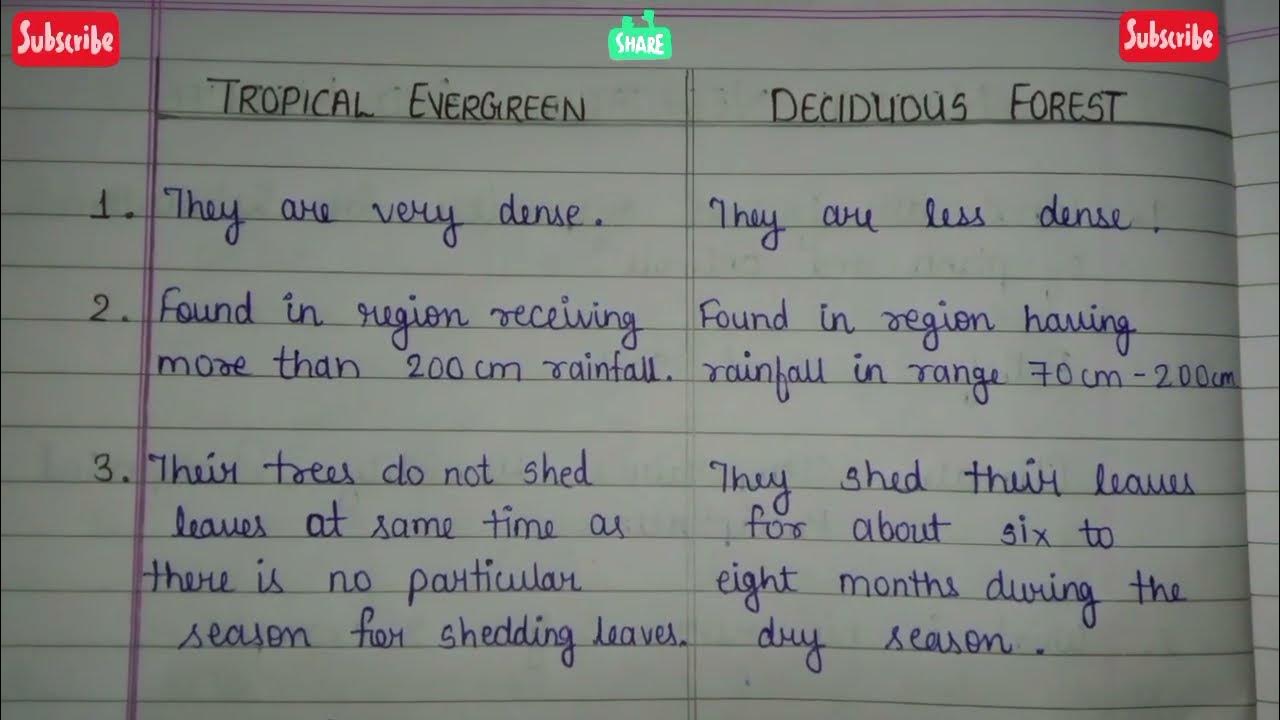 Subscribe
SHARE
Subscribe
TROPICAL EVERGREEN
DECIDUOUS FOREST
1. They are very dense.
They are less dense.
2. Found in region receiving
more than 200 cm rainfall.
Found in region having
rainfall in range 70 cm - 200 cm
3. Their trees do not shed
leaves at same time as
there is no particular
season for shedding leaves.
They shed their leaves
for about six to
eight months during the
dry season.